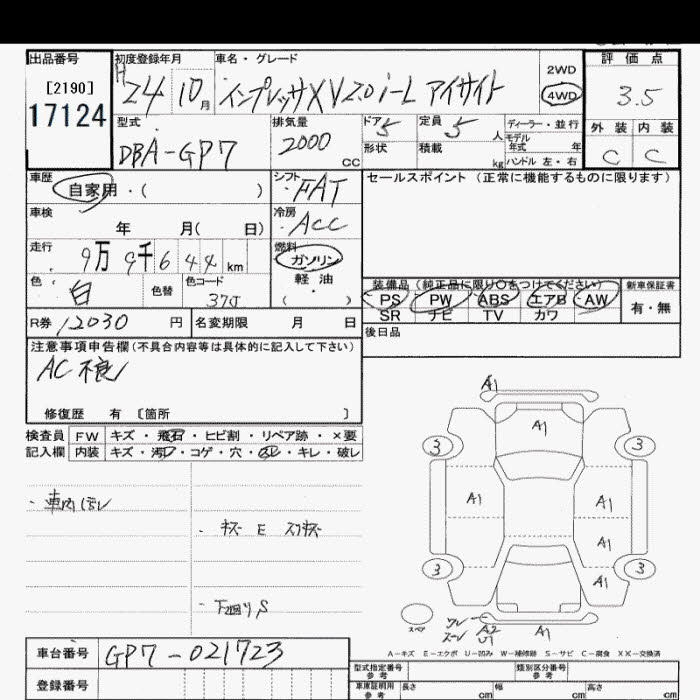 出品番号 初度登録年月 車名・グレード 評価点
[2190] H24 10月 インプレッサXV2.0i-L アイサイト 2WD 4WD 3.5
17124
型式 排気量 ドア 5 定員 5 人 ディーラー・並行 外装 内装
DBA-GP7 2000 cc 形状 積載 kg モデル年式 年 ハンドル 左・右 C C
車歴 自家用・( ) シフト FAT セールスポイント (正常に機能するものに限ります)
車検 年 月( 日) 冷房 ACC
走行 9万9千644 km 燃料 ガソリン
軽油
( )
色 白 色替 色コード 37J 装備品 (純正品に限り○をつけてください) 新車保証書
PS PW ABS エアB AW 有・無
SR ナビ TV カワ
R券 12030 円 名変期限 月 日 後日品
注意事項申告欄(不具合内容等は具体的に記入して下さい)
AC不良
修復歴 有 〔箇所 〕
検査員 FW キズ・飛石・ヒビ割・リペア跡・×要
記入欄 内装 キズ・汚レ・コゲ・穴・スレ・キレ・破レ
・キズ E スリキズ
・下廻りS
A1
A1
3 3
A1 A1
A1
3 3 A1
スペア A2 U1 A1
A-キズ E-エクボ U-凹み W-補修跡 S-サビ C-腐食 XX-交換済
車台番号 GP7-021723
登録番号
型式指定番号 参考 類別区分番号 参考
車庫証明用 参考 長さ cm 幅 cm 高さ cm